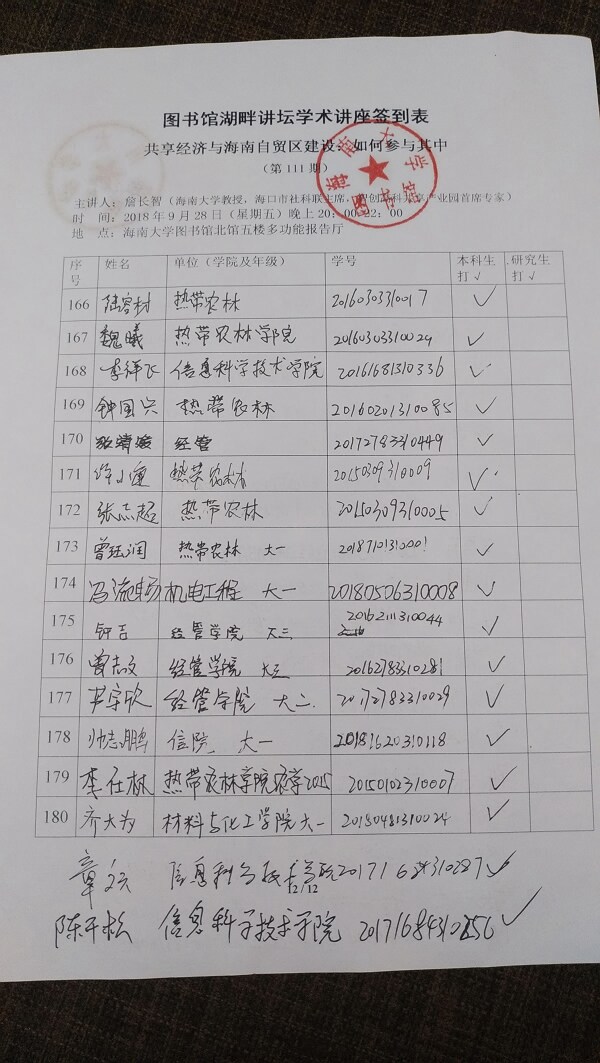 图书馆湖畔讲坛学术讲座签到表
共享经济与海南自贸区建设：如何参与其中
（第111期）
主讲人：詹长智（海南大学教授，海口市社科联主席，智创 首席专家）
时 间：2018年9月28日（星期五）晚上20：00-22：00
地 点：海南大学图书馆北馆五楼多功能报告厅
序号 姓名 单位（学院及年级） 学号 本科生打√ 研究生打√
166 陆容材 热带农林 20160303310017 √
167 魏曦 热带农林学院 20160303310024 √
168 李祥飞 信息科学技术学院 20161681310336 √
169 钟国兴 热带农林 20160201310085 √
170 经管 20172783310449 √
171 热带农林 20150309310009 √
172 张志超 热带农林 20150309310005 √
173 曾钰润 热带农林 大一 √
174 冯流畅 机电工程 大一 20180506310008 √
175 钟吉 经管学院 大三 20162111310044 √
176 曾志文 经管学院 大三 20162783310281 √
177 尹宇欣 经管学院 大二 20172783310029 √
178 帅志鹏 信院 大一 20181620310118 √
179 李仕林 热带农林学院农学2015 20150102310007 √
180 齐大为 材料与化工学院 大一 20180481310024 √
章 信息科学技术学院 √
12/12
陈千松 信息科学技术学院 20171684310256 √
海南大学图书馆